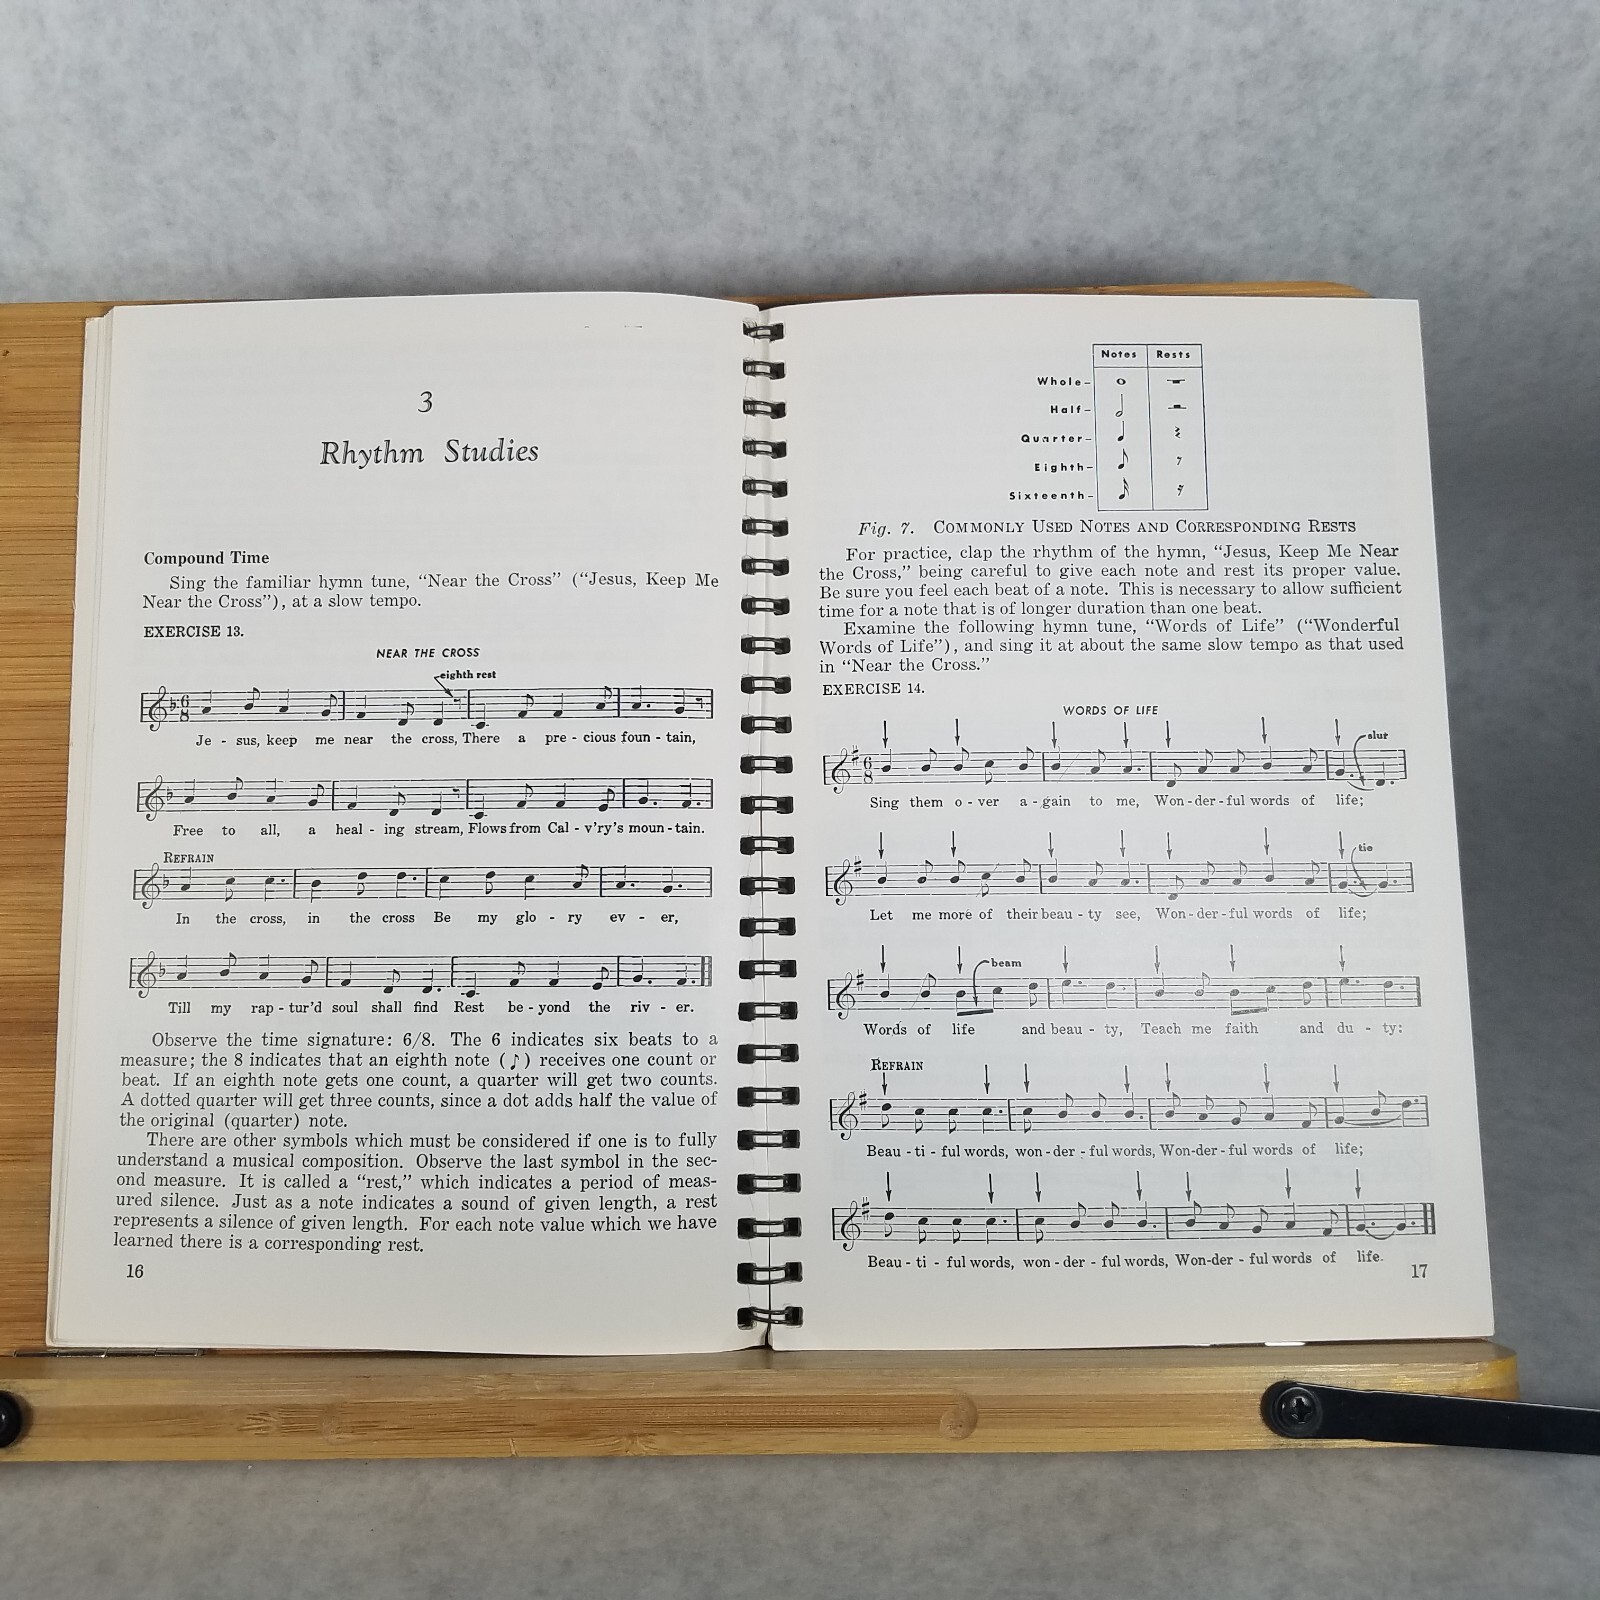 3
Rhythm Studies
Compound Time
Sing the familiar hymn tune, “Near the Cross” (“Jesus, Keep Me
Near the Cross”), at a slow tempo.
EXERCISE 13.
NEAR THE CROSS
eighth rest
6
8
Je - sus, keep me near the cross, There a pre - cious foun - tain,
Free to all, a heal - ing stream, Flows from Cal - v'ry's moun - tain.
REFRAIN
In the cross, in the cross Be my glo - ry ev - er,
Till my rap - tur'd soul shall find Rest be - yond the riv - er.
Observe the time signature: 6/8. The 6 indicates six beats to a
measure; the 8 indicates that an eighth note (♪) receives one count or
beat. If an eighth note gets one count, a quarter will get two counts.
A dotted quarter will get three counts, since a dot adds half the value of
the original (quarter) note.
There are other symbols which must be considered if one is to fully
understand a musical composition. Observe the last symbol in the sec-
ond measure. It is called a “rest,” which indicates a period of meas-
ured silence. Just as a note indicates a sound of given length, a rest
represents a silence of given length. For each note value which we have
learned there is a corresponding rest.
16
Notes Rests
Whole-
Half-
Quarter-
Eighth-
Sixteenth-
Fig. 7. COMMONLY USED NOTES AND CORRESPONDING RESTS
For practice, clap the rhythm of the hymn, “Jesus, Keep Me Near
the Cross,” being careful to give each note and rest its proper value.
Be sure you feel each beat of a note. This is necessary to allow sufficient
time for a note that is of longer duration than one beat.
Examine the following hymn tune, “Words of Life” (“Wonderful
Words of Life”), and sing it at about the same slow tempo as that used
in “Near the Cross.”
EXERCISE 14.
WORDS OF LIFE
slur
6
8
Sing them o - ver a - gain to me, Won - der - ful words of life;
tie
Let me more of their beau - ty see, Won - der - ful words of life;
beam
Words of life and beau - ty, Teach me faith and du - ty:
REFRAIN
Beau - ti - ful words, won - der - ful words, Won-der - ful words of life;
Beau - ti - ful words, won - der - ful words, Won-der - ful words of life.
17